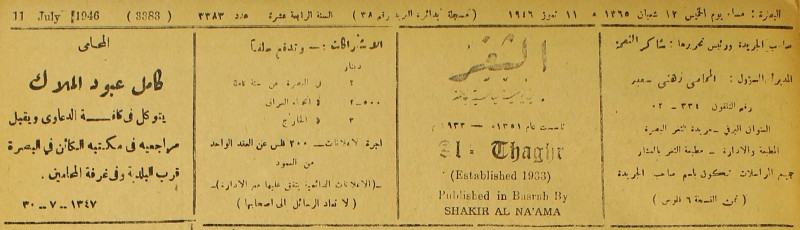 البصرة : مساء يوم الخميس ١٢ شعبان ١٣٦٥ * ١١ تموز ١٩٤٦ (مسجلة بدائرة البريد رقم ٣٨) السنة الرابعة عشرة عدد ٣٣٨٣ (3383) 11 July 1946
صاحب الجريدة ورئيس تحريرها : شاكر النعمة
المدير المسؤول : المحامي زهني
رقم التلفون ٣٣٤ — ٠٢
العنوان البرقي — جريدة الثغر البصرة
المطبعة والادارة — مطبعة الثغر بالعشار
جميع المراسلات تكون باسم صاحب الجريدة
(ثمن النسخة ٦ فلوس)
الثغر
جريدة يومية سياسية
تأسست عام ١٣٥١ — ١٩٣٣م
El - Thaghr
(Established 1933)
Published in Basrah By
SHAKIR AL NA'AMA
الاشتراكات : — وتدفع سلفا
دينار
٢ في البصرة عن سنة كاملة
٥٠٠-٢ في انحاء العراق
٣ في الخارج
اجرة الاعلانات — ٢٠٠ فلس عن العقد الواحد
من العمود
— (الاعلانات الدائمية يتفق عليها مع الادارة) —
(لا تعاد الرسائل الى اصحابها)
المحامي
كامل عبود الملاك
يتوكل في كافة الدعاوى ويقبل
مراجعيه في مكتبه الكائن في البصرة
قرب البلدية وفي غرفة المحامين .
١٣٤٧ — ٧ — ٣٠